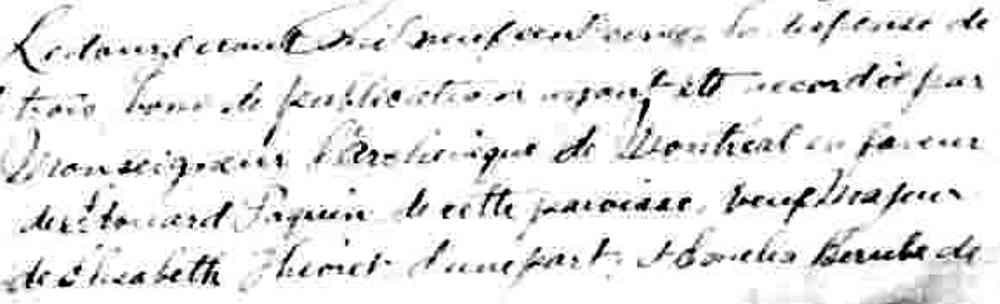 Le douze aout mil neuf cent onze, la dispense de
trois bans de publication ayant été accordée par
Monseigneur l'Archevêque de Montréal en faveur
de Edouard Paquin de cette paroisse, veuf majeur
de Elisabeth d'une part, et Berube de